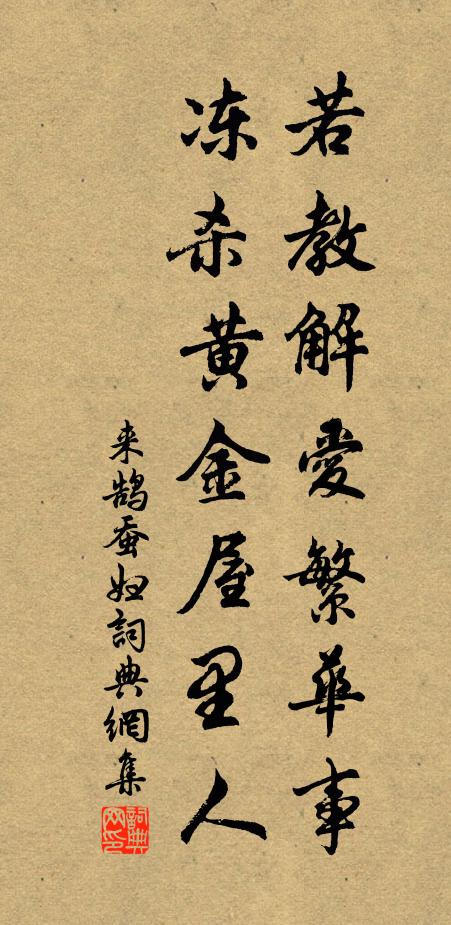 若教解愛繁華事
冻杀黄金屋里人
来鹄蚕妇詞典網集
詞典
网印